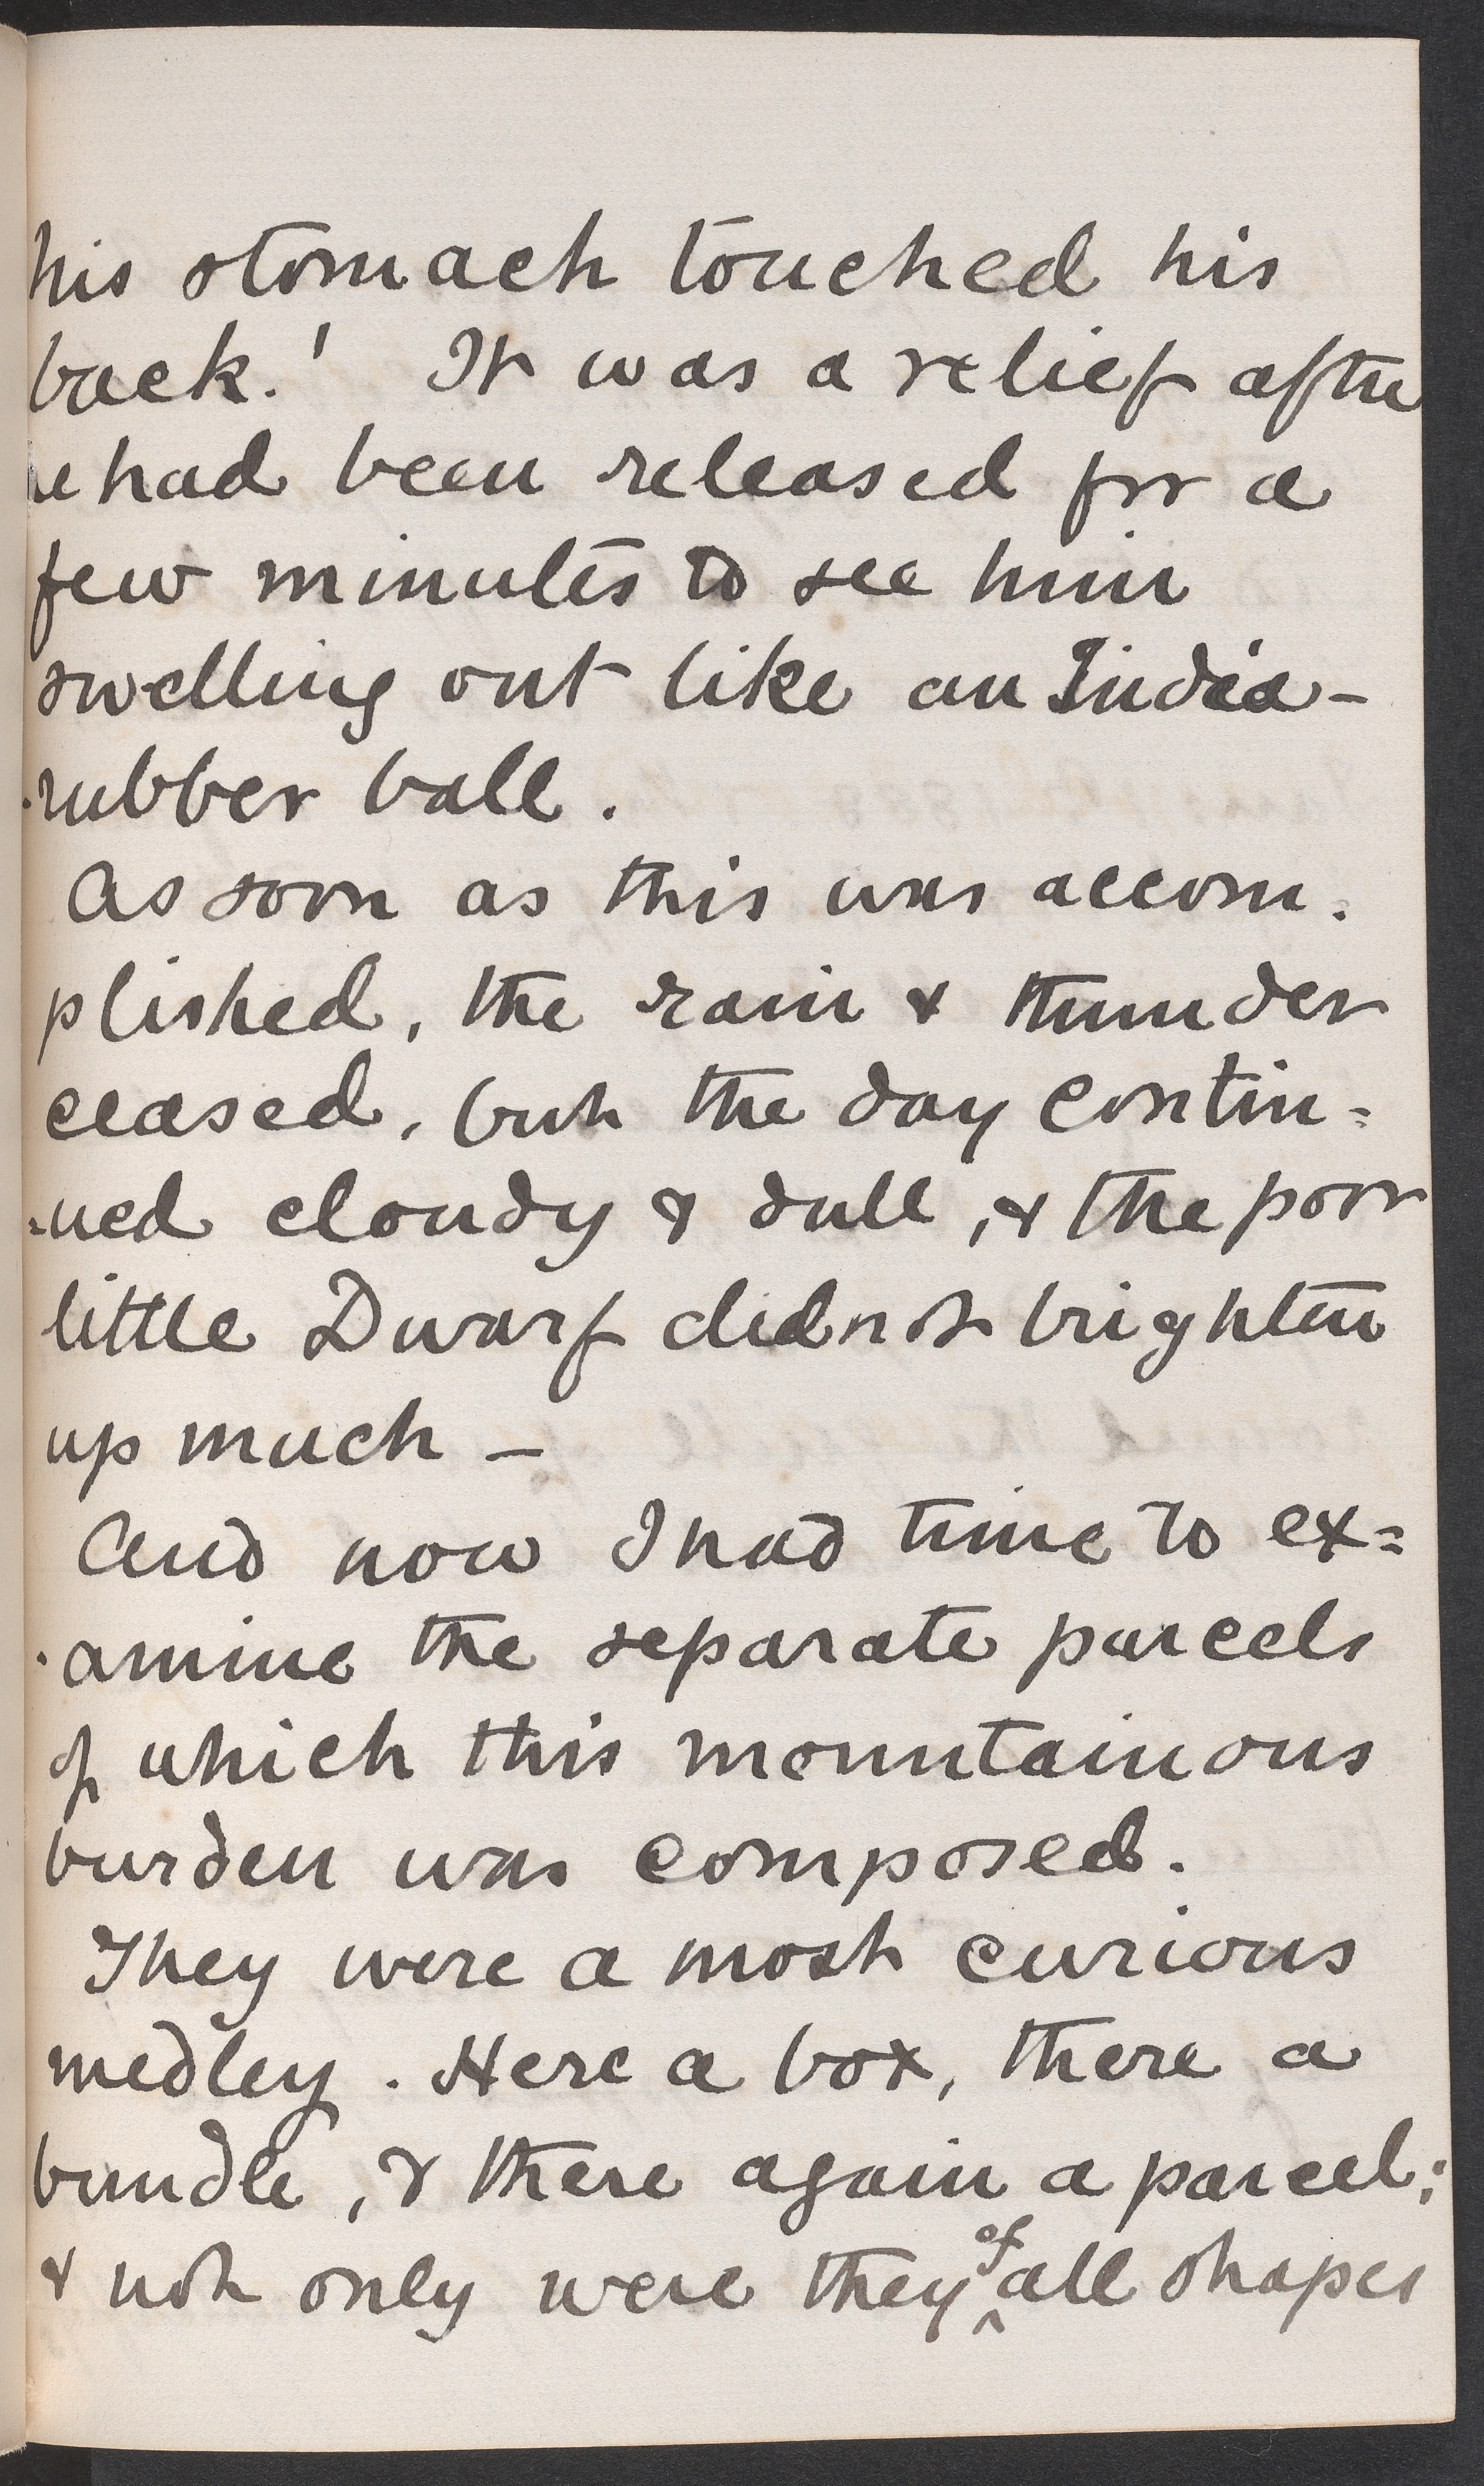 his stomach touched his
back.' It was a relief after
he had been released for a
few minutes to see him
swelling out like an India-
-rubber ball.
As soon as this was accom-
plished, the rain & thunder
ceased, but the day contin=
=ued cloudy & dull, & the poor
little Dwarf did not brighten
up much –
And now I had time to ex=
-amine the separate parcels
of which this mountainous
burden was composed.
They were a most curious
medley. Here a box, there a
bundle, & there again a parcel;
& not only were they of all shapes